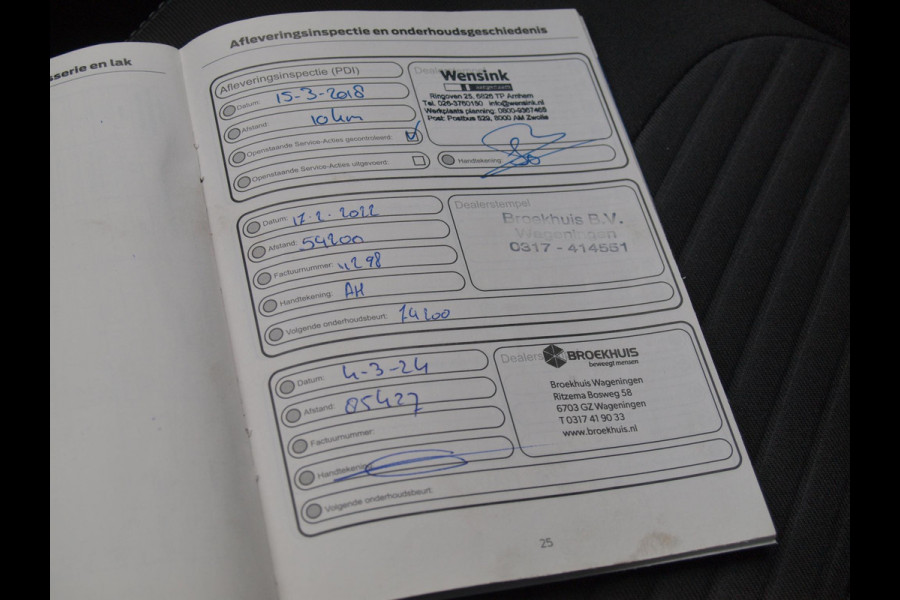 sserie en lak
Afleveringsinspectie en onderhoudsgeschiedenis
Afleveringsinspectie (PDI)
Datum: 15-3-2018
Afstand: 10 km
Openstaande Service-Acties gecontroleerd:
Openstaande Service-Acties uitgevoerd:
Wensink
Ringoven 25, 6826 TP Arnhem
Tel. 026-3760150 info@wensink.nl
Werkplaats planning: 0800-9367465
Post: Postbus 529, 8000 AM Zwolle
Handtekening:
Datum: 17-2-2022
Afstand: 54200
Factuurnummer:
Handtekening: AH
Volgende onderhoudsbeurt: 74200
Dealerstempel
Broekhuis B.V.
Wageningen
0317 - 414551
Datum: 4-3-24
Afstand: 85427
Factuurnummer:
Handtekening:
Volgende onderhoudsbeurt:
BROEKHUIS
beweegt mensen
Broekhuis Wageningen
Ritzema Bosweg 58
6703 GZ Wageningen
T 0317 41 90 33
www.broekhuis.nl
25